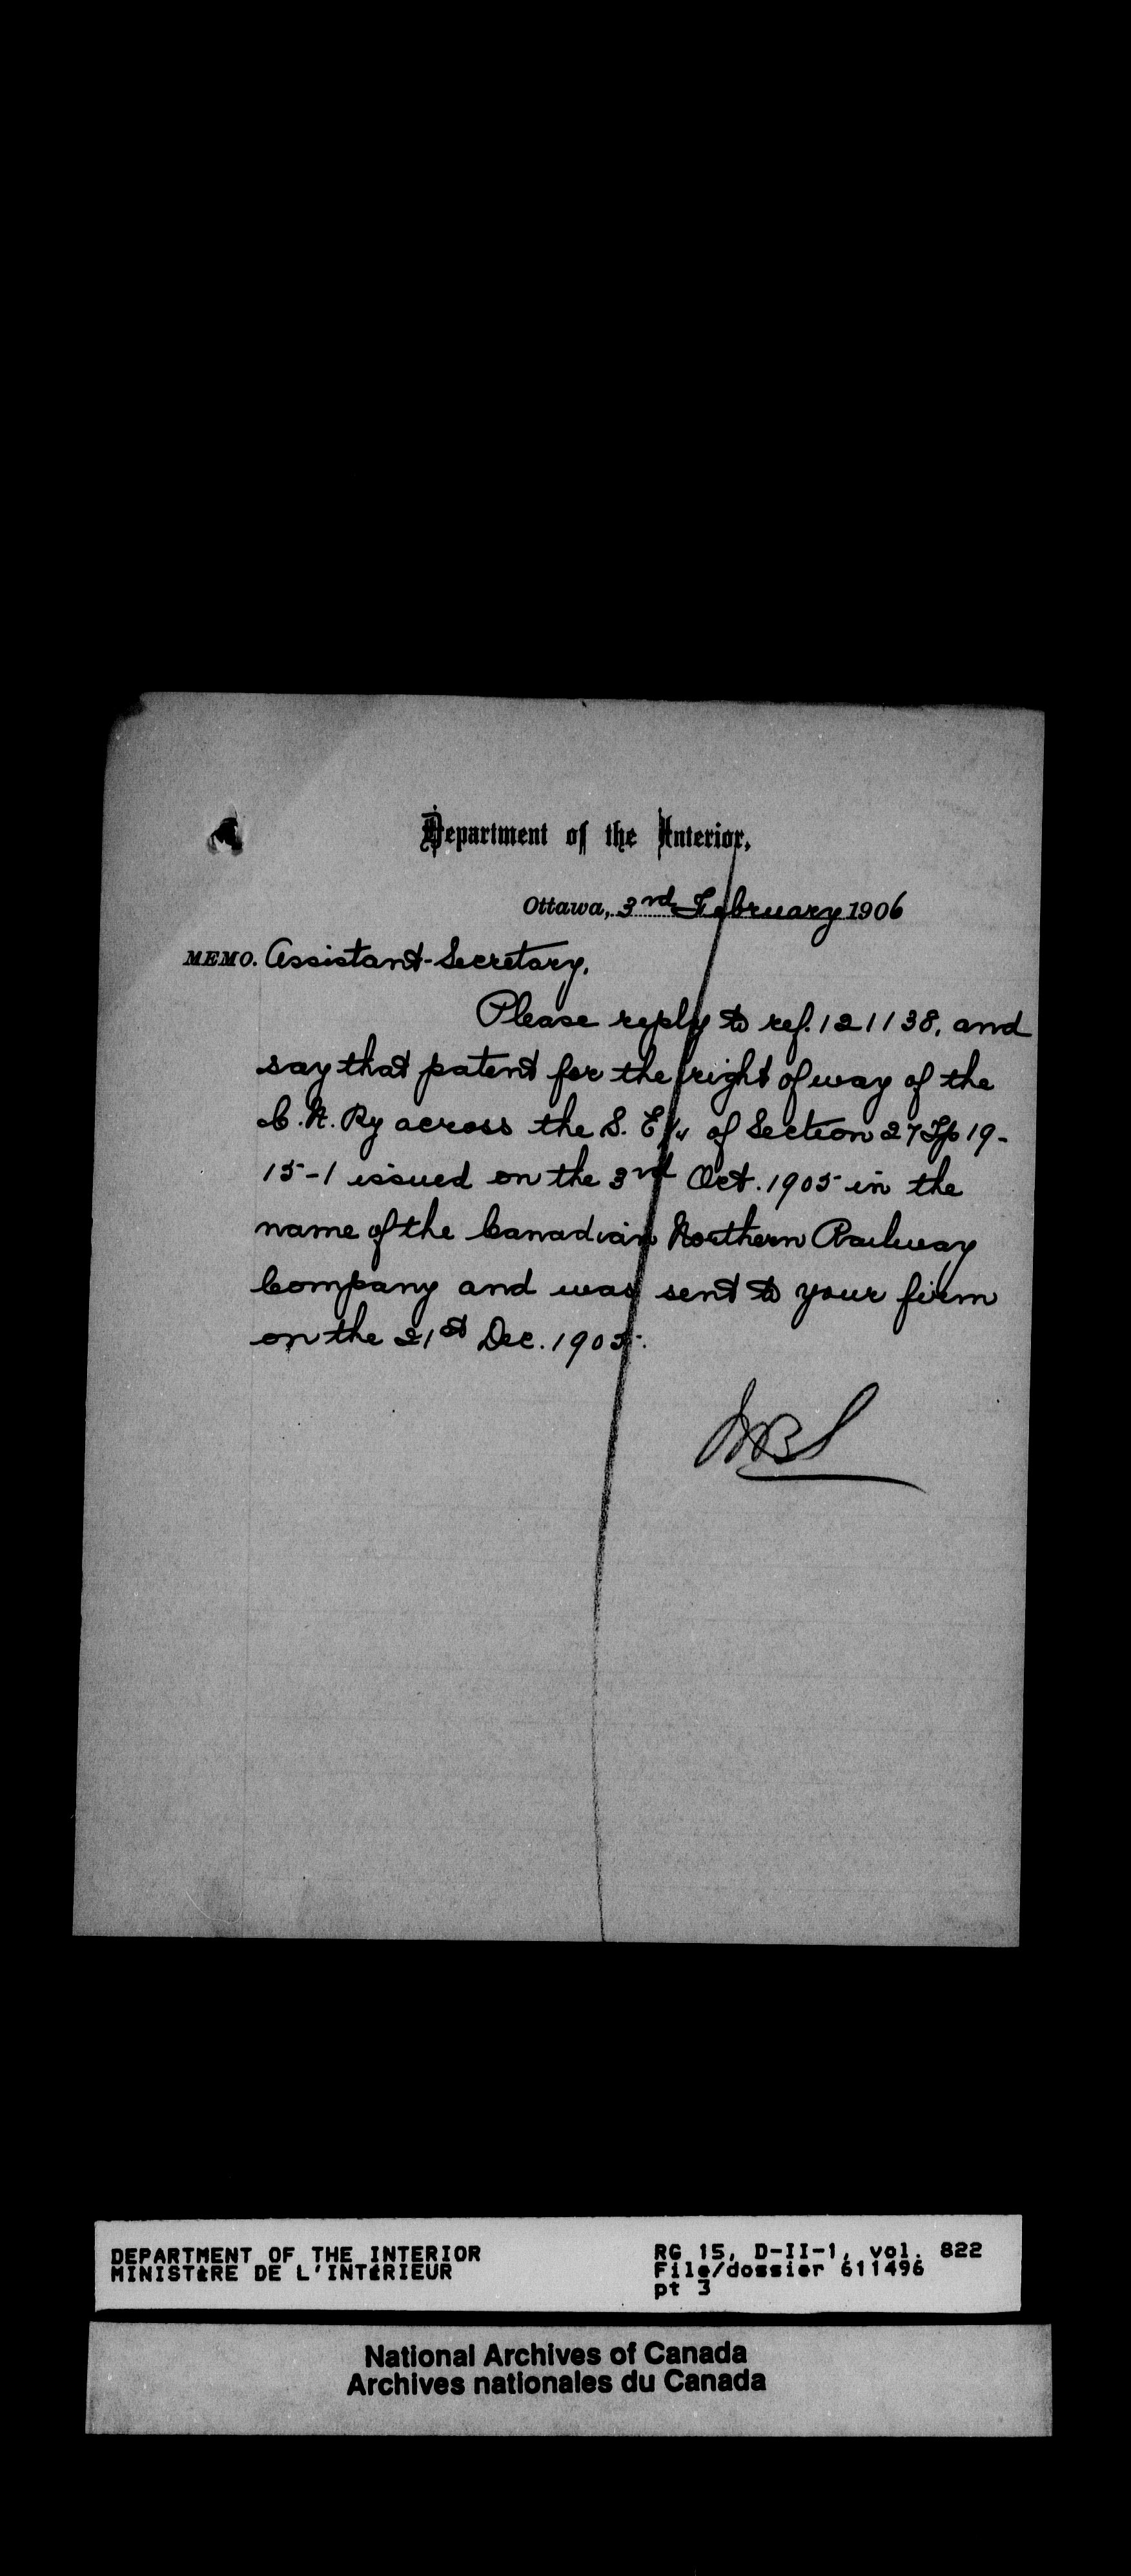 Department of the Interior,
Ottawa, 3rd February 1906
MEMO. Assistant-Secretary,
Please reply to ref. 121138, and
say that patent for the right of way of the
C. N. Ry across the S. E 1/4 of Section 27 Tp 19-
15-1 issued on the 3rd Oct. 1905 in the
name of the Canadian Northern Railway
Company and was sent to your firm
on the 21st Dec. 1905.
DEPARTMENT OF THE INTERIOR
MINISTÈRE DE L'INTÉRIEUR
RG 15, D-II-1, vol. 822
File/dossier 611496
pt 3
National Archives of Canada
Archives nationales du Canada